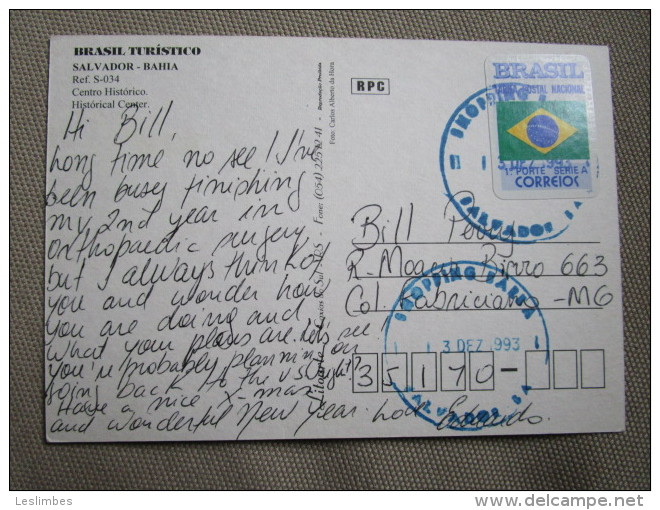 BRASIL TURÍSTICO
SALVADOR - BAHIA
Ref. S-034
Centro Histórico.
Historical Center.
Hi Bill,
Long time no see! I've
been busy finishing
my 2nd year in
orthopaedic surgery
but I always think of
you and wonder how
you are doing and
what your plans are. Let's see!
you'r probably planning on
going back to the US (right?)
Have a nice X-mas
and wonderful New Year.
Foto: Carlos Alberto da
Reprodução Proibida
RPC
BRASIL
POSTAL NACIONAL
1º PORTE SÉRIE A
CORREIOS
SHOPPING
3 DEZ 993
SALVADOR BA
Bill
R. 663
Col. Fabriciano - MG
35170-
SHOPPING BARRA
3 DEZ 993
SALVADOR BA
Leslimbes
delcampe.net